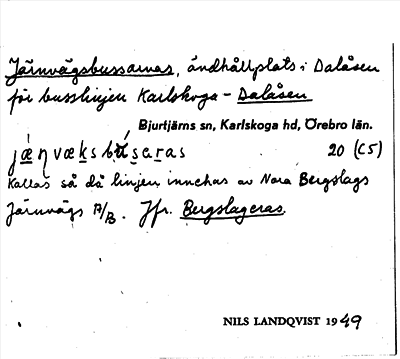 Järnvägsbussarnas, ändhållplats i Dalåsen
för busslinjen Karlskoga - Dalåsen
Bjurtjärns sn, Karlskoga hd, Örebro län.
20 (C5)
Kallas så då linjen innehas av Nora Bergslags
Järnvägs A/B. Jfr. Bergslageras.
NILS LANDQVIST 1949